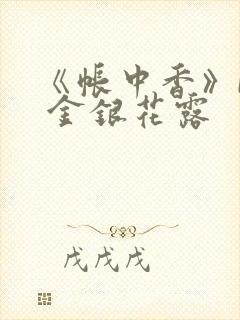 《帳中香》
金銀花露
戊戊戊